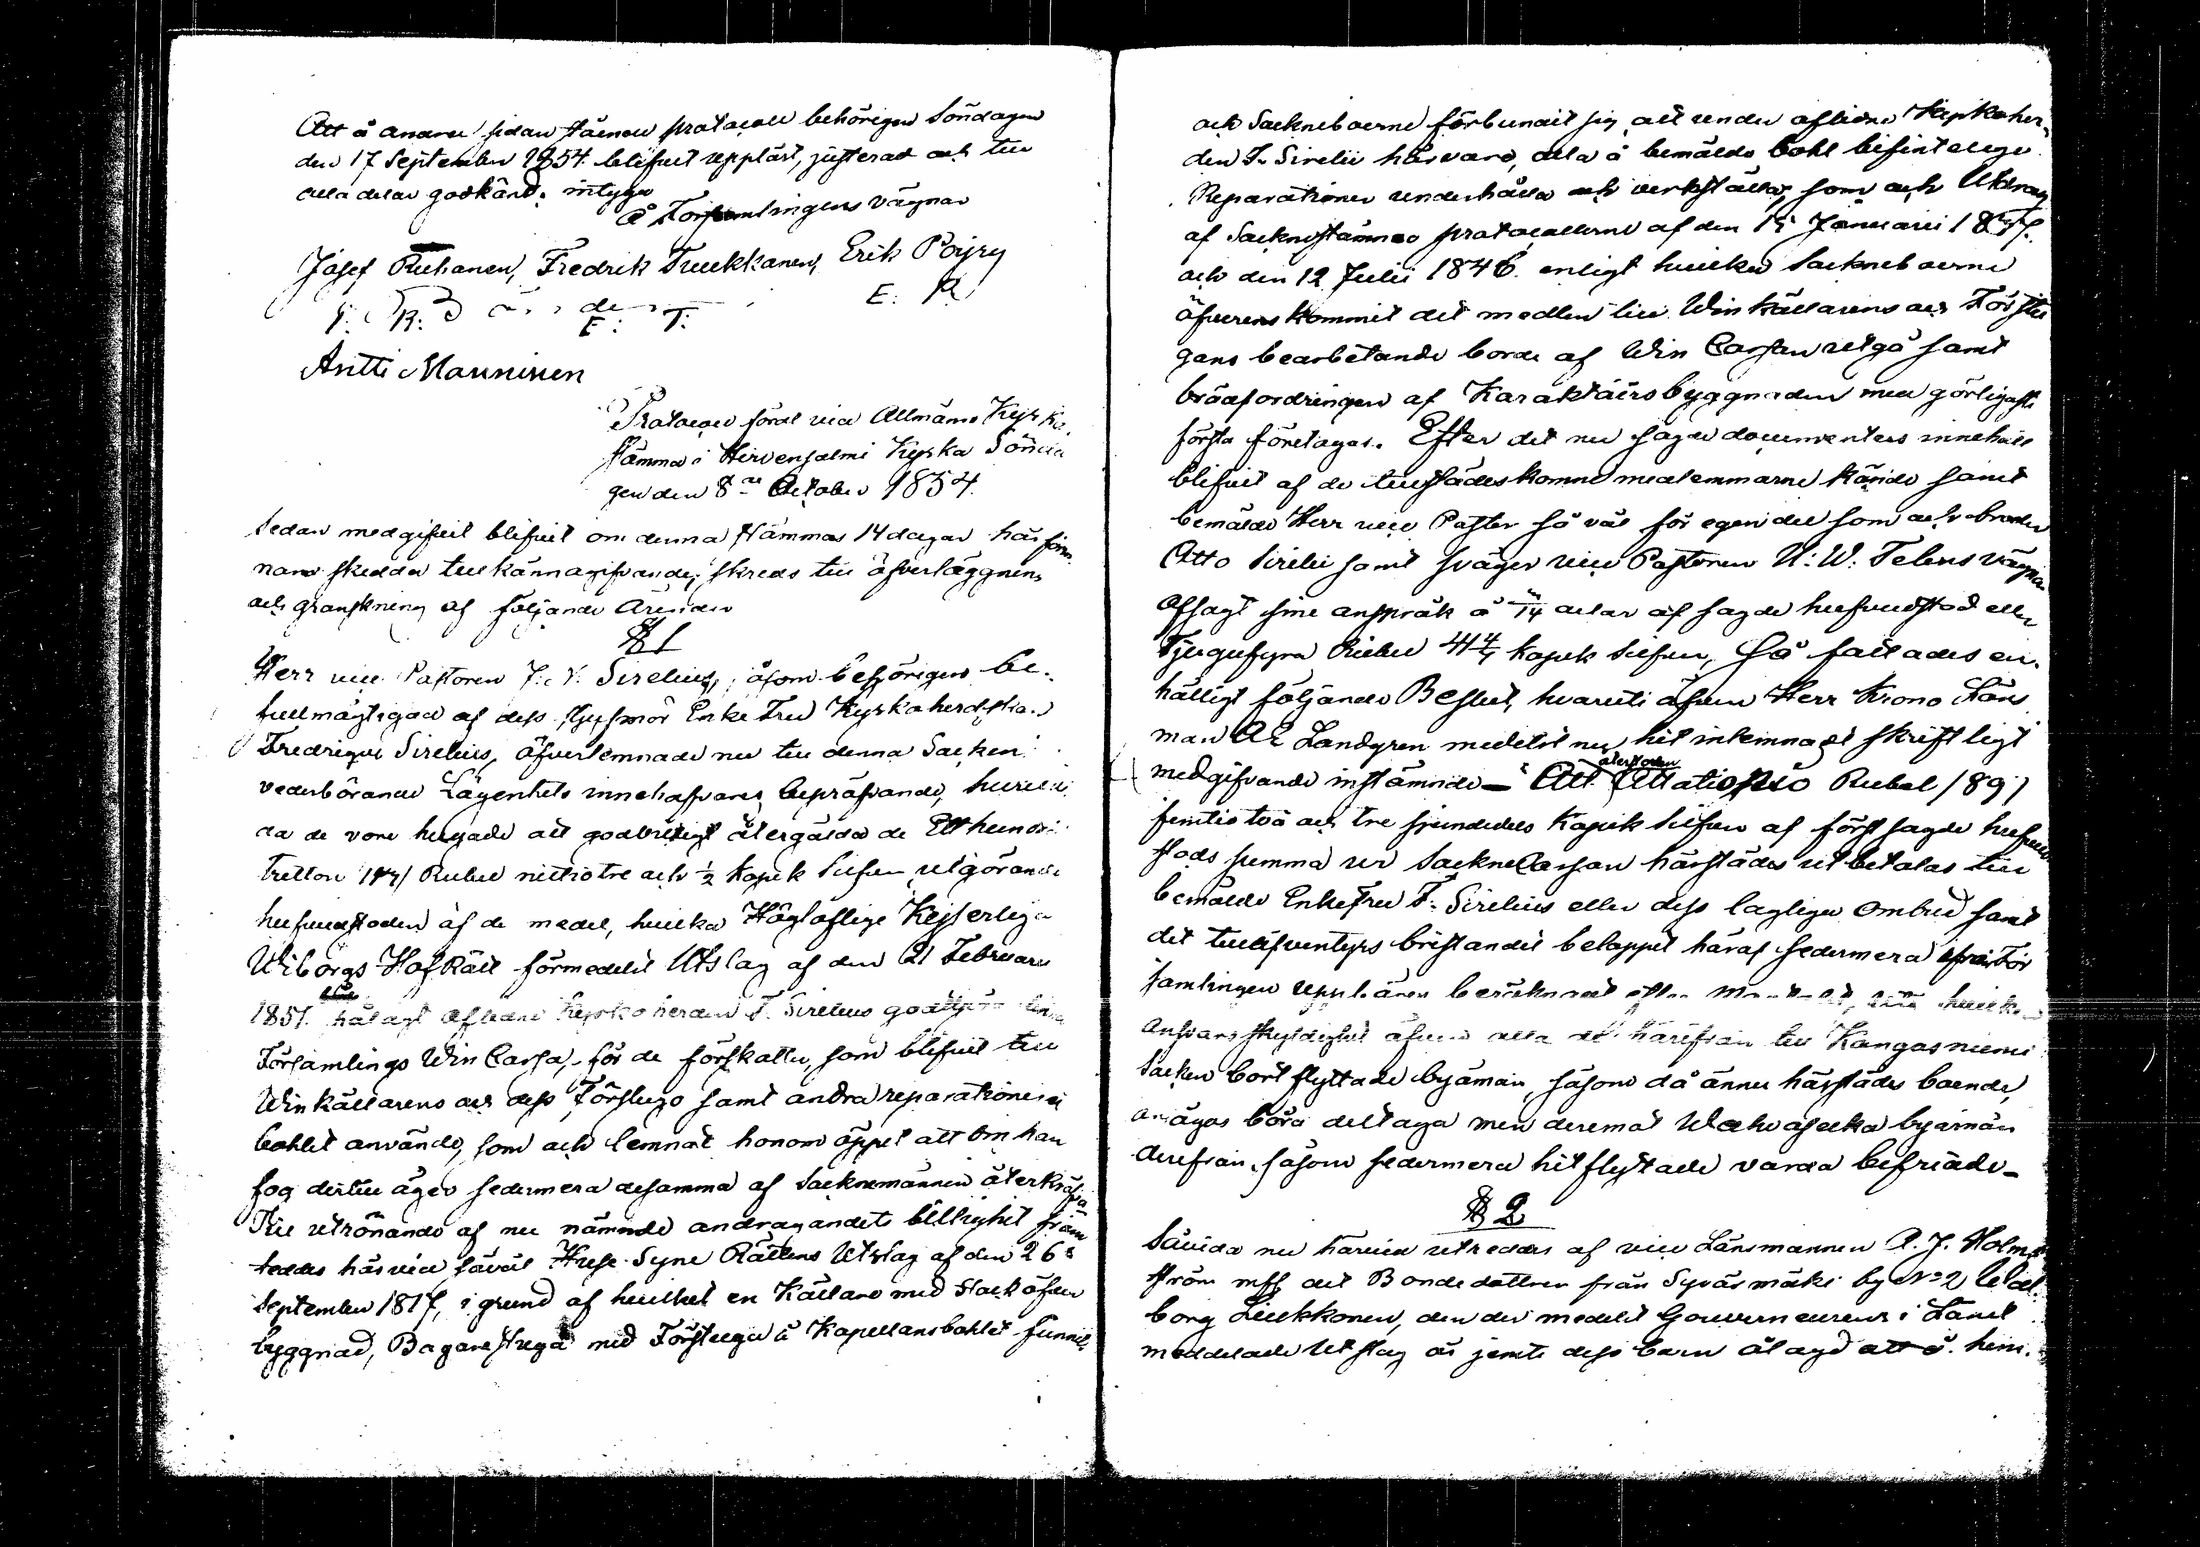 Att å andra sidan stående protocoll behörigen Söndagen
den 17 September 1854 blifvit uppläst, justerad och till
alla delar godkänd; intyga
å Församlingens vägnar
Josef Ruhanen, Fredrik Tuukkanen, Erik Pöyry
J: R: F: T: E: P.
Antti Manninen
Protocoll fördt vid Allmänna Kyrko
stämma i Hirvensalmi Kyrka Sönda
gen den 8de October 1854.
Sedan medgifvit blifvit om denna stämmas 14 dagar härförin
nan skedda tillkännagifvande, skreds till öfverläggning
och granskning af följande ärenden
§ 1
Herr vice Pastoren J: N: Sirelius, såsom behörigen be-
fullmägtigad af dess styfmor Enke Fru Kyrkoherdskan
Fredrique Sirelius, öfverlemnade nu till denna Socken
vederbörande Lägenhets innehafvares bepröfvande, huruvi
da de vore hugade att godvilligt återgälda de Etthundra
tretton Rubel nittiotre och ½ kopek Silfver utgörande
hufvudstolen af de medel, hvilka Högloflige Kejserliga
Wiborgs HofRätt förmedelst Utslag af den 21 Februari
1851. ålagt aflidne Kyrkoherden F. Sirelius godtgöra denna
Församlings Win Cassa, för de förskotter, som blifvit till
Winkällarens och dess Förstugo samt andra reparationer i
bohlet använde, som och lemnat honom öppet att om han
fog dertill äger sedermera desamma af Sockenmännen återkräfva
Till utrönande af nu nämnde andragandets billighet fram
teddes härvid såväl Huse Syne Rättens Utslag af den 26
September 1817, i grund af hvilket en Källare med Stock öfver
byggnad, Bagarestuga med Förstuga å Kapellansbohlet funnits
och Sockneboerne förbundit sig att under aflidne Kyrkoher-
den F. Sirelii härvaro, alla å bemälde bohl befintelige
Reparationer underhålla och verkställa, som och Utdrag
af Sockenstämmo protocollerne af den 15 Januarii
och den 12 Julii 1846. enligt hvilka Sockneboerne
öfverenskommit det medlen till Winkällarens och Förstu
gans bearbetande borde af Win Cassan utgå samt
brädfordringen af Karaktärsbyggnaden med görligaste
första företagas. Efter det nu sagde documenters innehåll
blifvit af de tillstädeskomne medlemmarne kände samt
bemälde Herr vice Pastor så väl för egen del som och brodren
Otto Sirelii samt svåger vice Pastoren N: W: Telens vägnar
afsagt sine anspråk å delar af sagde hufvudstod eller
Tjugufyra Rubel kopek Silfver, så fattades en-
hälligt följande Beslut, hvaruti äfven Herr Krono Läns
man A E Landgren medelst nu hit inlemnadt skriftligt
medgifvande instämnde — Att återstoden Åttationio Rubel /89/
femtiotvå och tre sjundedels kopek Silfver af först sagde hufvud
stods summa ur Sockne Cassan härstädes utbetalas till
bemälde EnkeFru F. Sirelius eller dess laglige ombud samt
det tilläfventyrs bristande beloppet häraf sedermera ifrån För
samlingen uppbäres beräknadt efter
ansvarsskyldighet äfven alla de härifrån till Kangasniemi
Socken bortflyttade byämän, såsom då ännu härstädes boende,
anågas böra deltaga men deremot byämän
derifrån, såsom sedermera hitflyttade varda befriade_
§ 2
Såvida nu härvid utreddes af vice Länsmannen A. J. Holm
ström att Bondedottren från Syväsmäki by No 2 Wal
borg Liukkonen, den der medelst Gouverneurens i Länet
meddelade Utslag är jemte dess barn ålagd att å hem.